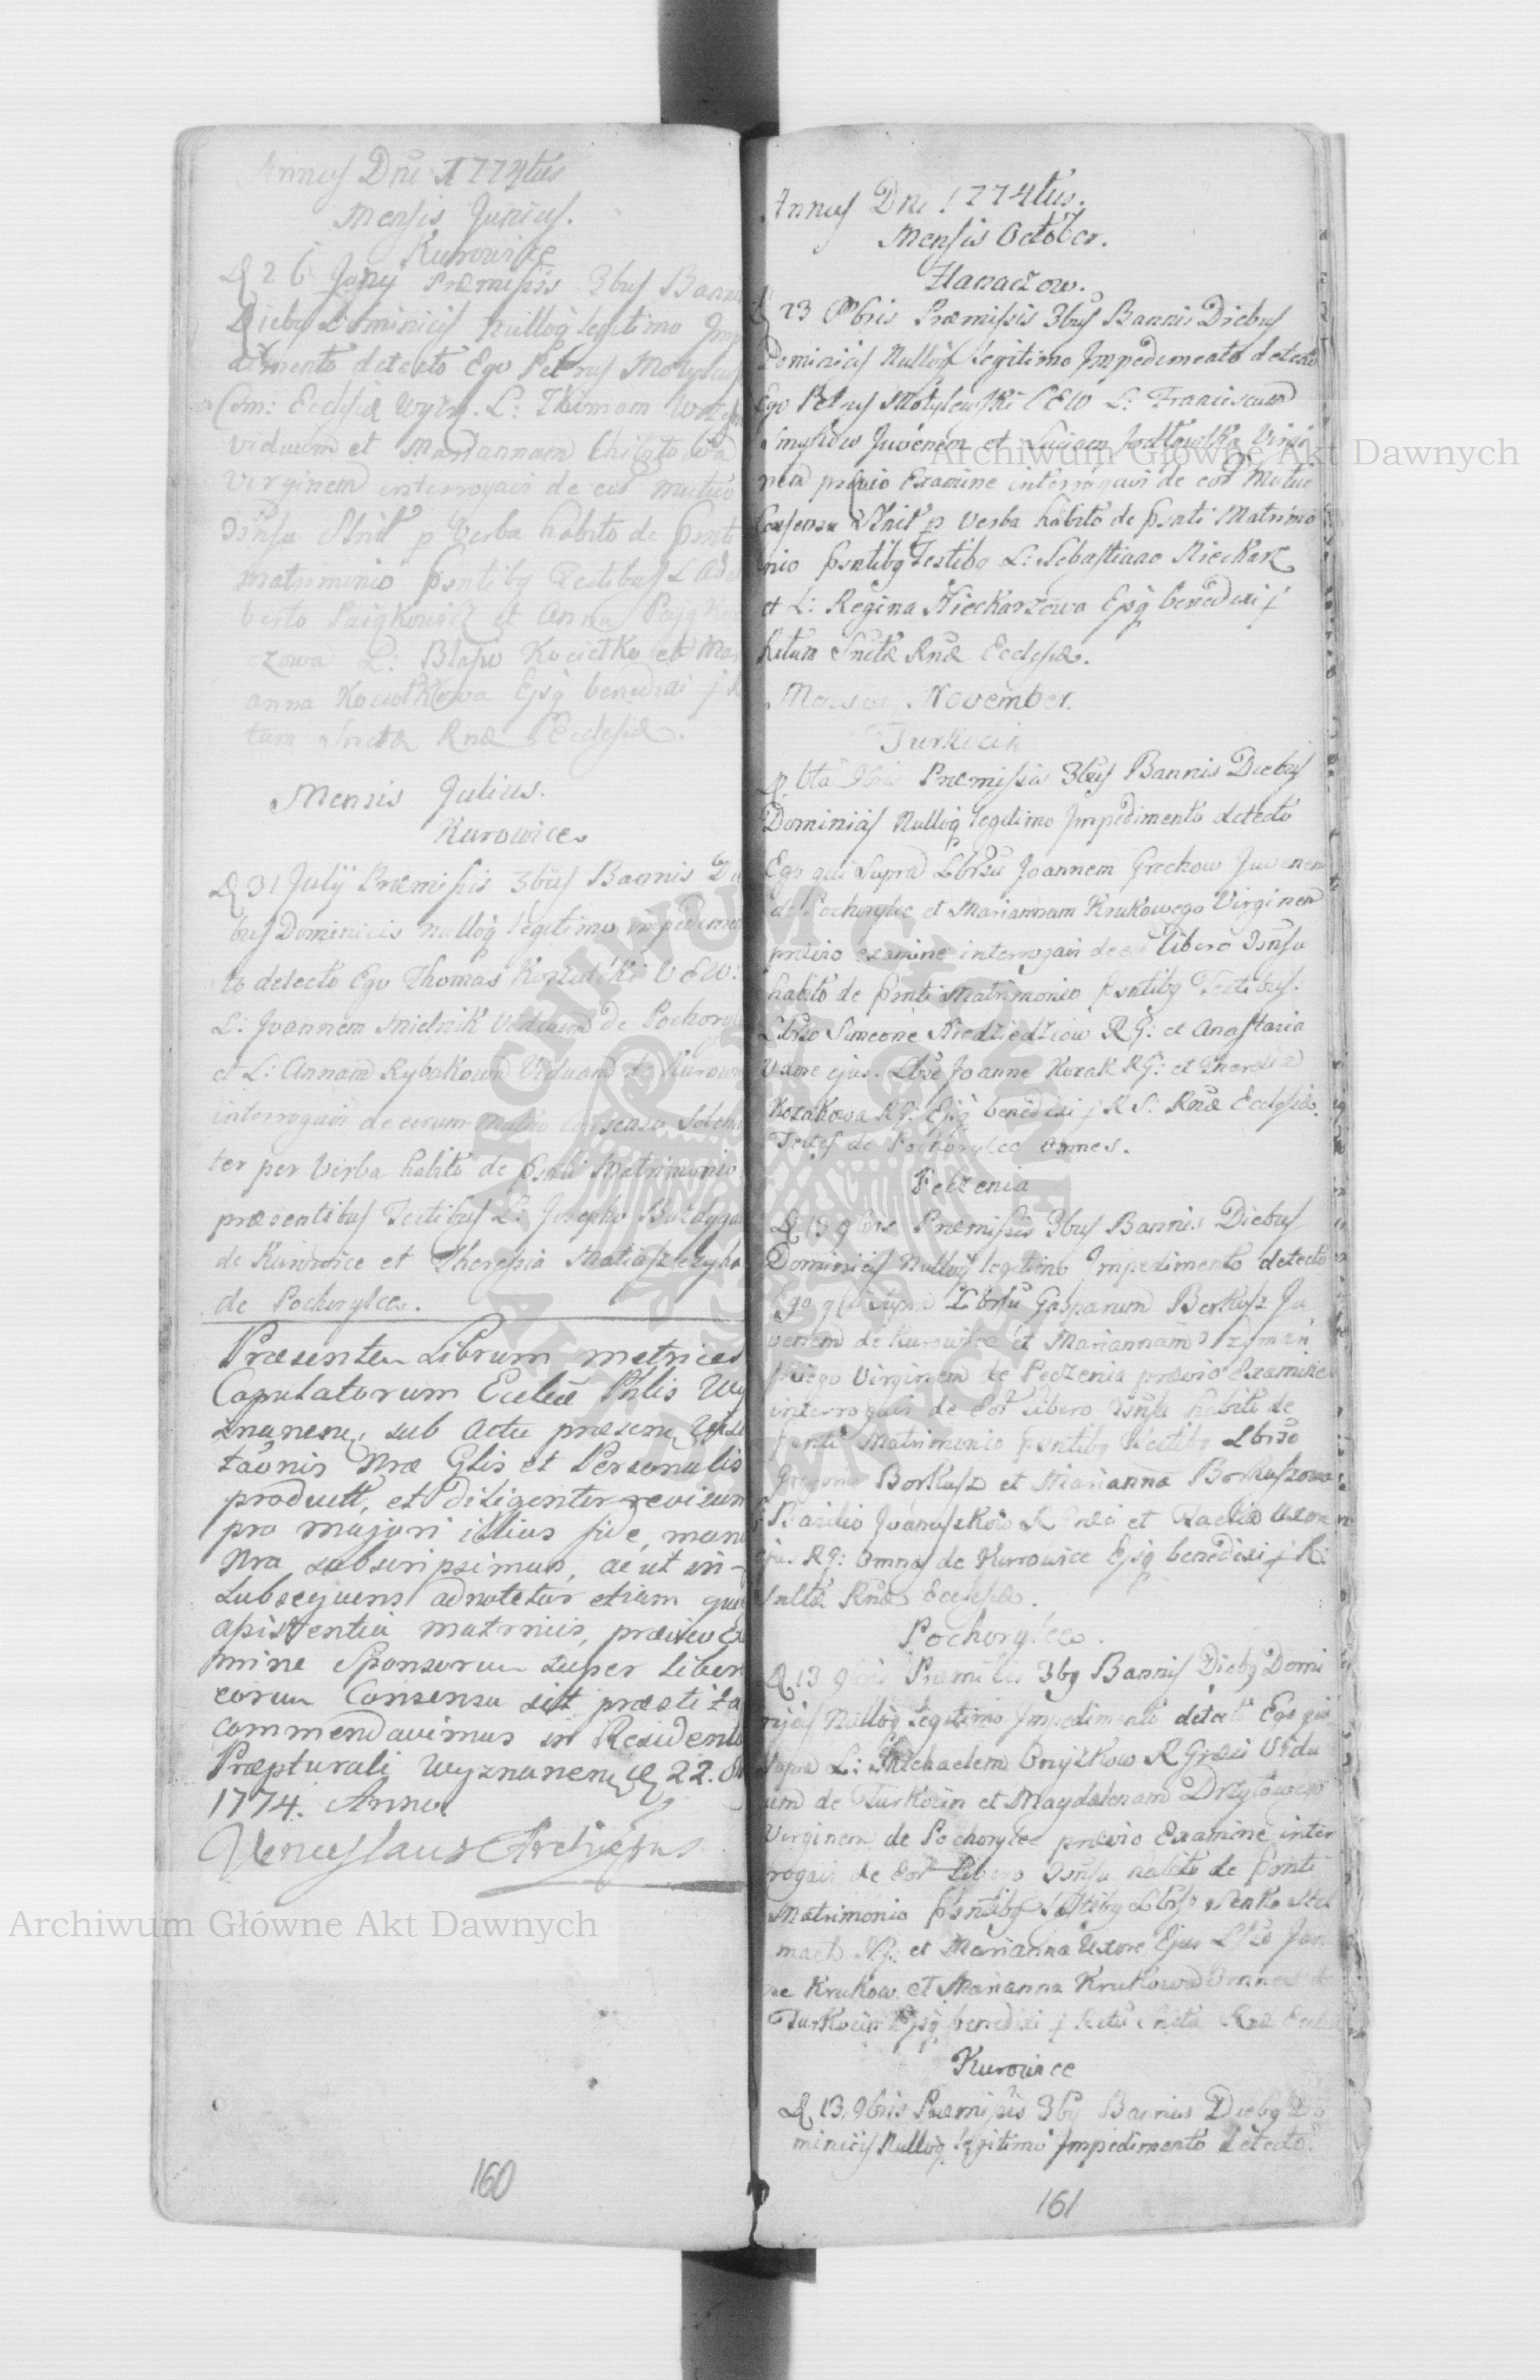 Annus Dni 1774tus
Mensis Junius.
Kurowice
D 26 Junij Præmissis 3bus Banni
Diebus Dominicis Nulloq legitimo Imp
dimento detecto Ego Petrus
Com: Ecclesiæ Wyzn. L: Thomam
viduum et Mariannam
Virginem interrogavi de eor mutuo
Snit p Verba habito de psnti
matrimonio psntibq Testibus L Adal
berto et Anna
czowa L: Blasio Kociełko et Mari
anna Kociełkowa Eosq benedixi j R
tum Snctæ Rnæ Ecclesiæ.
Mensis Julius.
Kurowice
D 31 Julij Præmissis 3bus Bannis Die
bus Dominicis nulloq legitimo impedimen
to detecto Ego Thomas VEW:
L: Joannem Mielnik Viduum de Pochoryl
et L: Annam Rybakowa Viduam de Kurowi
interrogavi de eorum mutuo consensu Solemni
ter per Verba habito de psnti Matrimonio
præsentibus Testibus L: Josepho
de Kurowice et Theresia
de Pochorylce.
Præsentem Librum metrices
Copulatorum Eccleæ Phlis Wy
znanen, sub actu præsen Visi
taonis Nræ Glis et Personalis
product, et diligenter revisum
pro majori illius fide, manu
Nra subscripsimus, ac ut in-
subsequens adnotetur etiam
assistentia matrniis, prævio Exa
mine Sponsorum super libero
eorum Consensu sit præstita
commendavimus in Residentia
Præpturali Wyznanen D 22. 8
1774. Anno.
Venceslaus Archieppus
160
Annus Dni 1774tus.
Mensis October.
Hanaczow.
D 23 8bris Præmissis 3bus Bannis Diebus
Dominicis Nulloq legitimo Impedimento detecto
Ego Petrus Motylewski CEW L: Franciscum
Smyków Juvenem et Luciam Virgi
nem prævio Examine interrogavi de eor Mutuo
Consensu Snit p Verba habito de psnti Matrimo
nio psntibq Testibq L: Sebastiano Nieckarz
et L: Regina Nieckarzowa Eosq benedixi j
Ritum Snctæ Rnæ Ecclesiæ.
Mensis November.
Turkocin
D 6ta 9bris Præmissis 3bus Bannis Diebus
Dominicis Nulloq legitimo Impedimento detecto
Ego qui Supra Lbrsu Joannem Grechow Juvenem
de Pochorylce et Mariannam Krukowego Virginem
prævio examine interrogavi de eor libero Csnsu
habito de psnti Matrimonio psntibq Testibus.
Lbrso Simeone Niedziedziow RG: et Anastazia
Uxore ejus. Lbrso Joanne Kozak RG: et Theresia
Kozakowa RG: Eosq benedixi j R S: Rnæ Ecclesiæ.
Testes de Pochorylce omnes.
Peczenia
D 13 9bris Præmissis 3bus Bannis Diebus
Dominicis Nulloq legitimo Impedimento detecto
Ego qui Supra Lbrsu Gasparum Borkusz Ju
venem de Kurowice et Mariannam Szyman
skiego Virginem de Peczenia prævio Examine
interrogavi de Eor libero Csnsu habito de
psnti Matrimonio psntibq Testibq Lbrso
Gregorio Borkusz et Marianna Borkuszowa
Basilio Iwanuszkow R Græci et Uxore
ejus RG: omnes de Kurowice Eosq benedixi j R:
Snctæ Rnæ Ecclesiæ.
Pochorylce.
D 13 9bris Præmissis 3bq Bannis Diebq Domi
nicis Nulloq legitimo Impedimento detecto Ego qui
Supra L: Michaelem Onyszkow R Græci Vidu
um de Turkocin et Magdalenam Drzytowego
Virginem de Pochorylce prævio Examine inter
rogavi de Eor Libero Csnsu habito de psnti
Matrimonio psntibq Testibq Lbrso Senko Stel
mach RG: et Marianna Uxore Ejus Lbrso Joan
ne Krukow et Marianna Krukowa Omnes de
Turkocin Eosq benedixi j Ritu Snctæ Rnæ Eccles
Kurowice
D 13 9bris Præmissis 3bq Bannis Diebq Do
minicis Nulloq legitimo Impedimento detecto.
161
Archiwum Główne Akt Dawnych
Archiwum Główne Akt Dawnych
ARCHIWUM GŁÓWNE AKT DAWNYCH